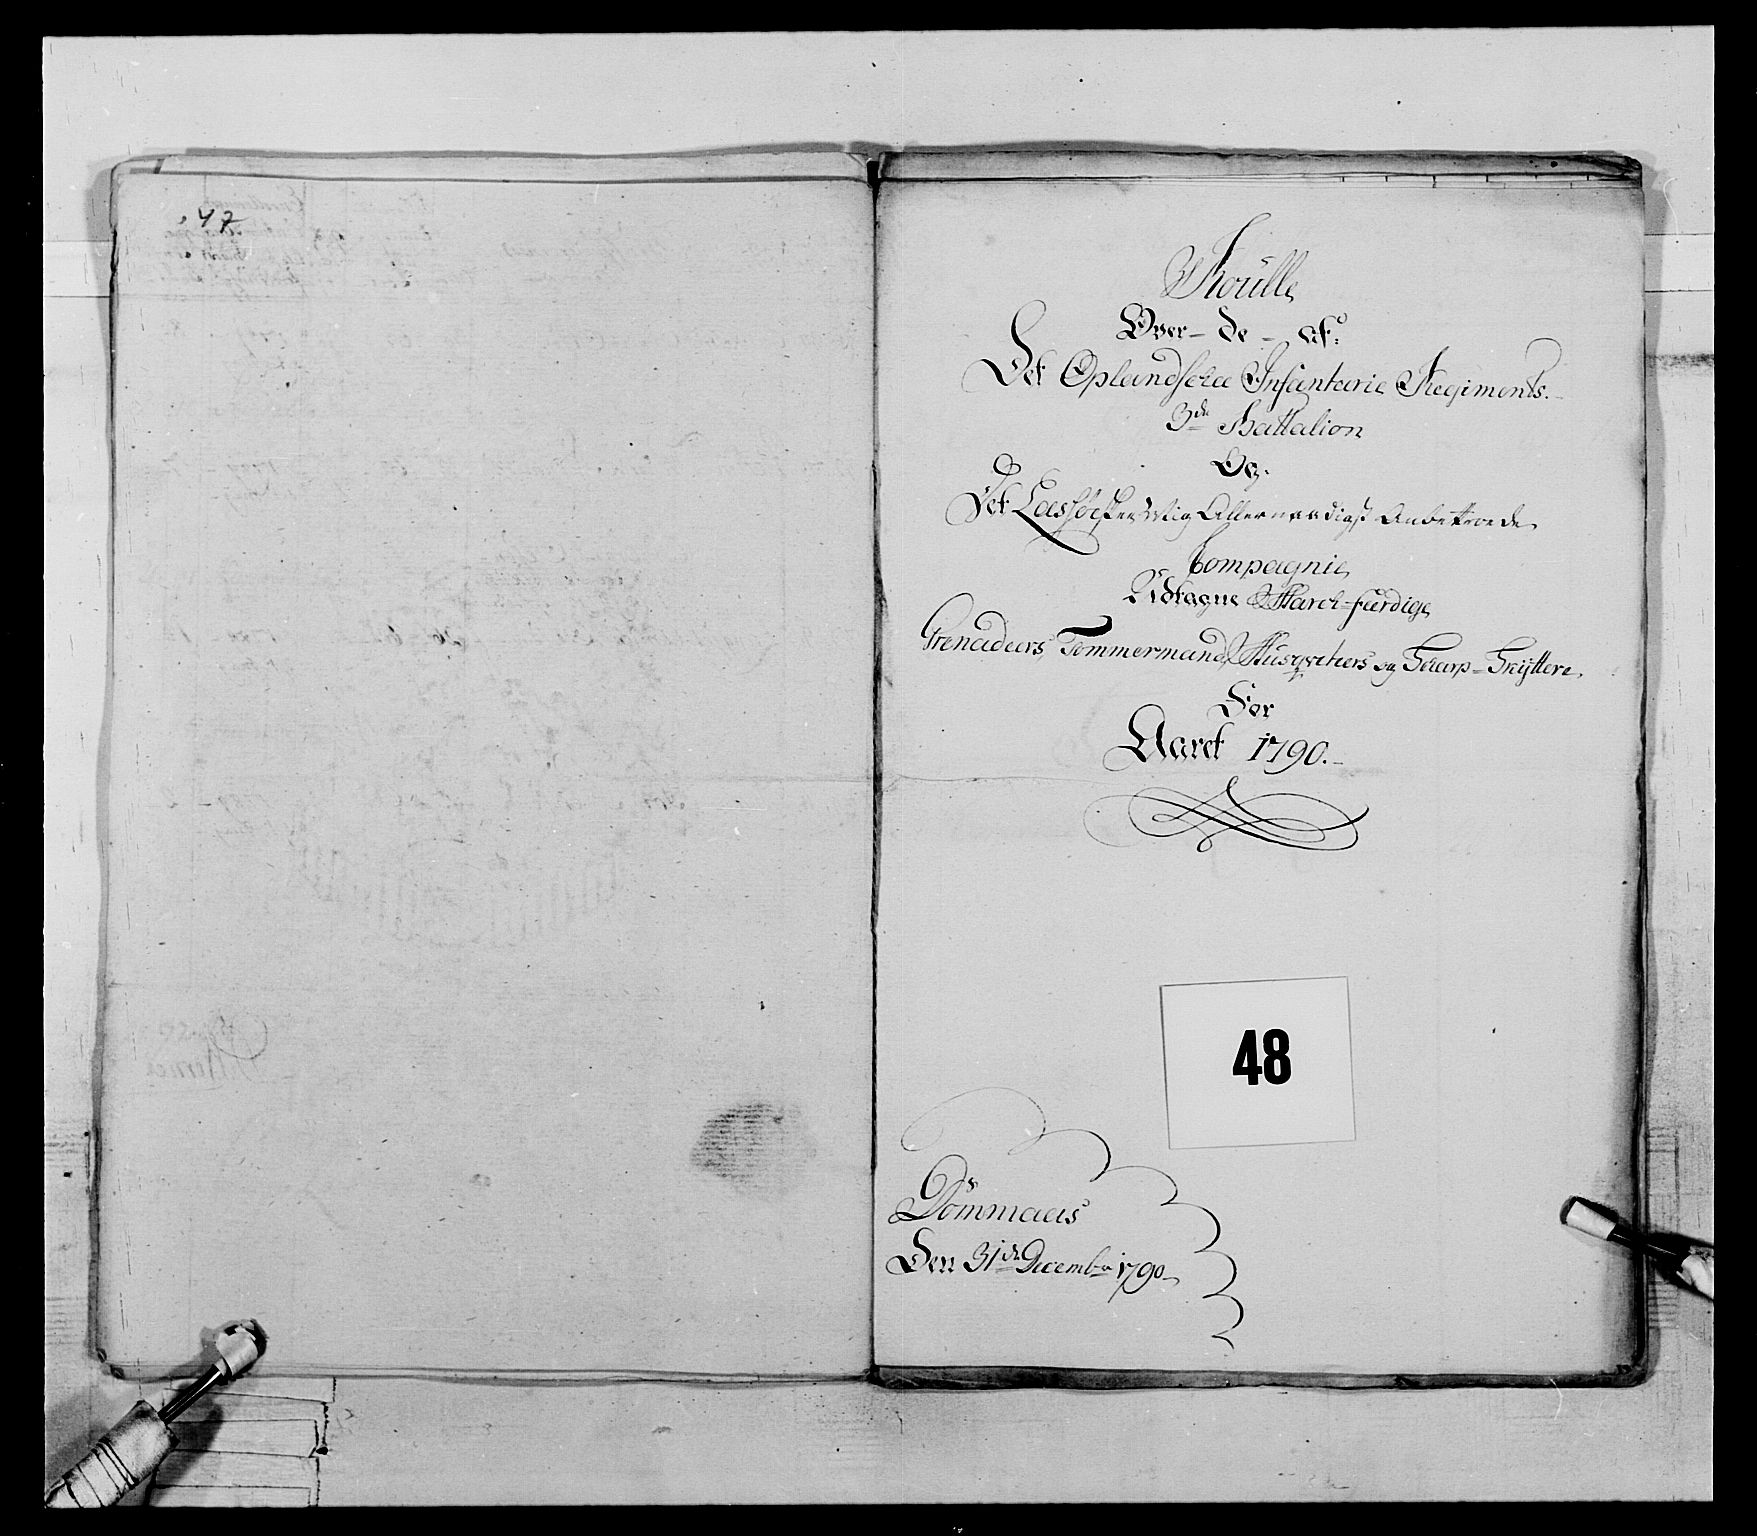 47
Roülle
Over - de - af
Det Oplandske Infanterie Regiments.
3de Battalion
Og.
Det Læssøeske Mig Allernaadigst Anbetroede
Compagnie
Udtagne March-færdige
Grenadeers, Tømmermænd, Musqveteers og Skarp-Skÿttere
For
Aaret 1790.
48
Dommaas
Den 31de Decembr 1790